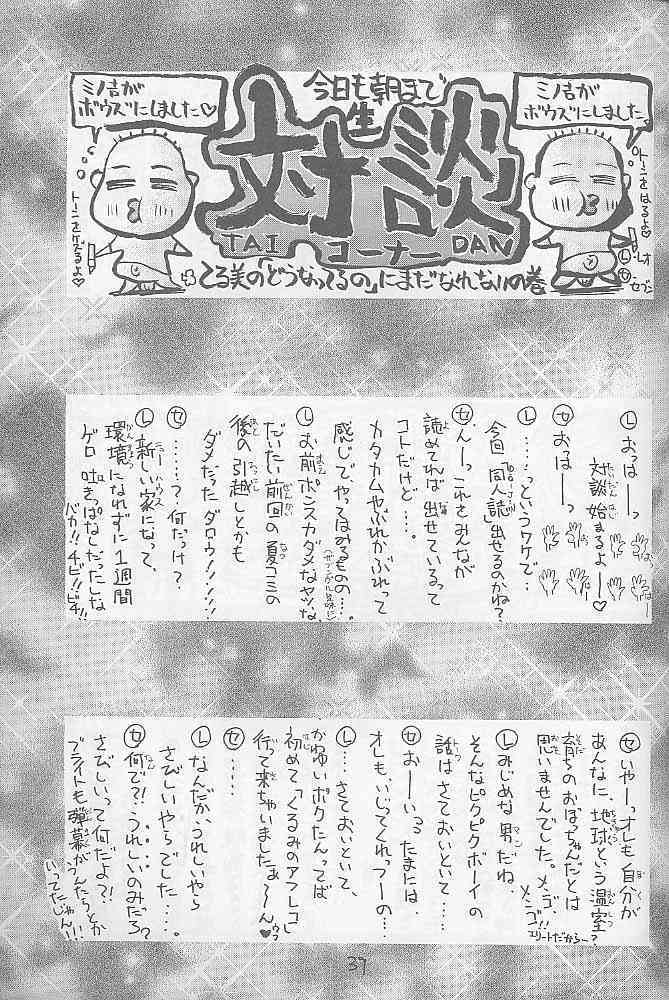 今日も朝まで
生
対談
TAI コーナー DAN
てる美の「どうなってるの」にまだなれないの巻
ミノ吉が
ボウズにしました♡
トーンをケズるよ♡
ミノ吉が
ボウズにしました
トーンをはるよ♡
Ⓛレオ
㋝セブン
Ⓛおっはーっ
対談始まるよー♡
㋝おっはーっ
Ⓛ……っというワケで…
今回「同人誌」出せるのかね?
㋝んーっこれをみんなが
読めてれば出せているって
コトだけど…。
カタカムやぶれかぶれって
感じで、やってはみるもの…。
Ⓛお前ポンスカダメなヤツな
だいたい前回の夏コミの
後の引越しとかも
ダメだったダロウ!!!!!
㋝……?何だっけ?
Ⓛ新しい家になって、
環境になれずに1週間
ゲロ吐きっぱなしだったしな
バカ!!チビ!!ビチ!!
㋝いやーっオレも自分が
あんなに、地球という温室
育ちのおぼっちゃんだとは
思いませんでした。メンゴ
メンゴ!!
エリートだからー?
Ⓛみじめな男だね、
そんなピクピクボーイの
話はさておいといて…
㋝おーいっ たまには、
オレも、いじってくれっつーの…
Ⓛ…さておいといて、
かわゆいボクたんってば
初めて「くるみのアフレコ」
行って来ちゃいましたぁ〜ん♡ウフ
㋝……
Ⓛなんだか、うれしいやら
さびしいやらでした…。
㋝何で?!うれしいのみだろ?
さびしいって何だよ?!
ブライトも弾幕がうんたらとか
いってたじゃん!!
37